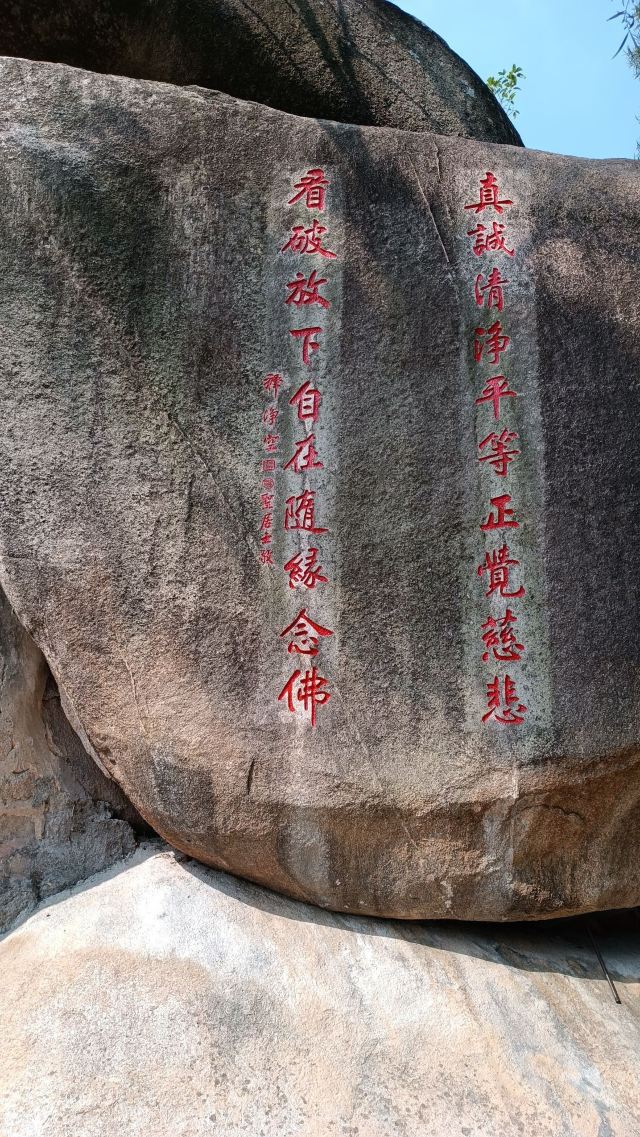 真誠清淨平等正覺慈悲
看破放下自在隨緣念佛
釋淨空
居士敬